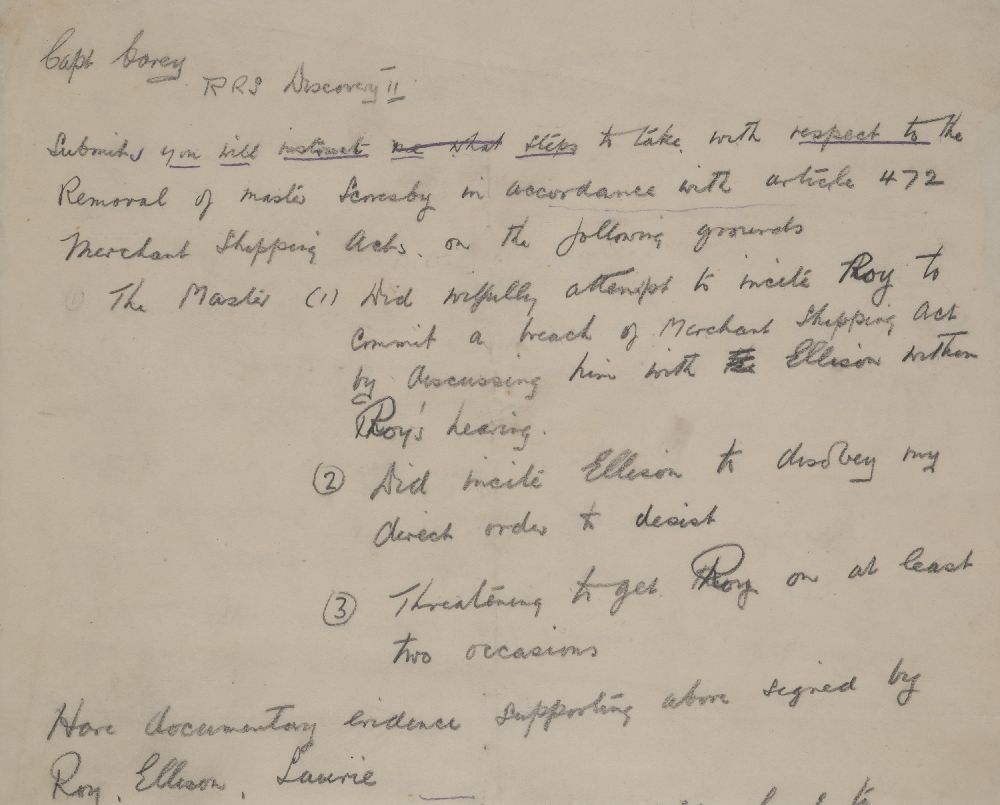 Capt Corey
RRS Discovery II
Submits you will instruct me what steps to take with respect to the
Removal of master Scoresby in accordance with article 472
Merchant Shipping Acts. on the following grounds
The Master (1) Did wilfully attempt to incite Roy to
commit a breach of Merchant Shipping Act
by discussing him with Ellison within
Roy's hearing.
(2) Did incite Ellison to disobey my
direct order to desist
(3) Threatening to get Roy on at least
two occasions
Have documentary evidence supporting above signed by
Roy, Ellison, Laurie